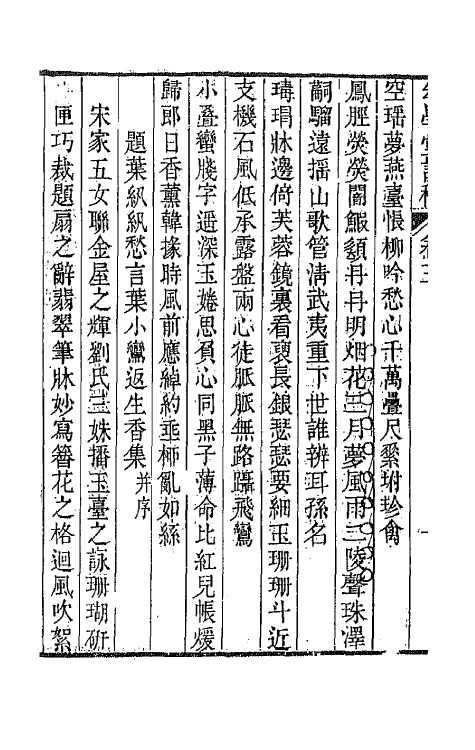 空瑶夢燕臺悵柳吟愁心千萬疊尺
鳳脛熒熒闇鰕鬚冉冉明烟花三月夢風雨三陵聲珠澤
嗣騮遠摇山歌管清武夷重下世誰辨耳孫名
瑇瑁牀邊倚芙蓉鏡裏看褏長銀瑟瑟要細玉珊珊斗近
支機石風低承露盤兩心徒脈脈無路躡飛鸞
小疊蠻牋字遥深玉婘思負心同黑子薄命比紅兒帳煖
歸郎日香薰韓掾時風前應綽約垂桞亂如絲
題葉紈紈愁言葉小鸞返生香集并序
宋家五女聯金屋之輝劉氏三姝播玉臺之詠珊瑚硏
匣巧裁題扇之辭翡翠筆牀妙寫簪花之格迴風吹絮